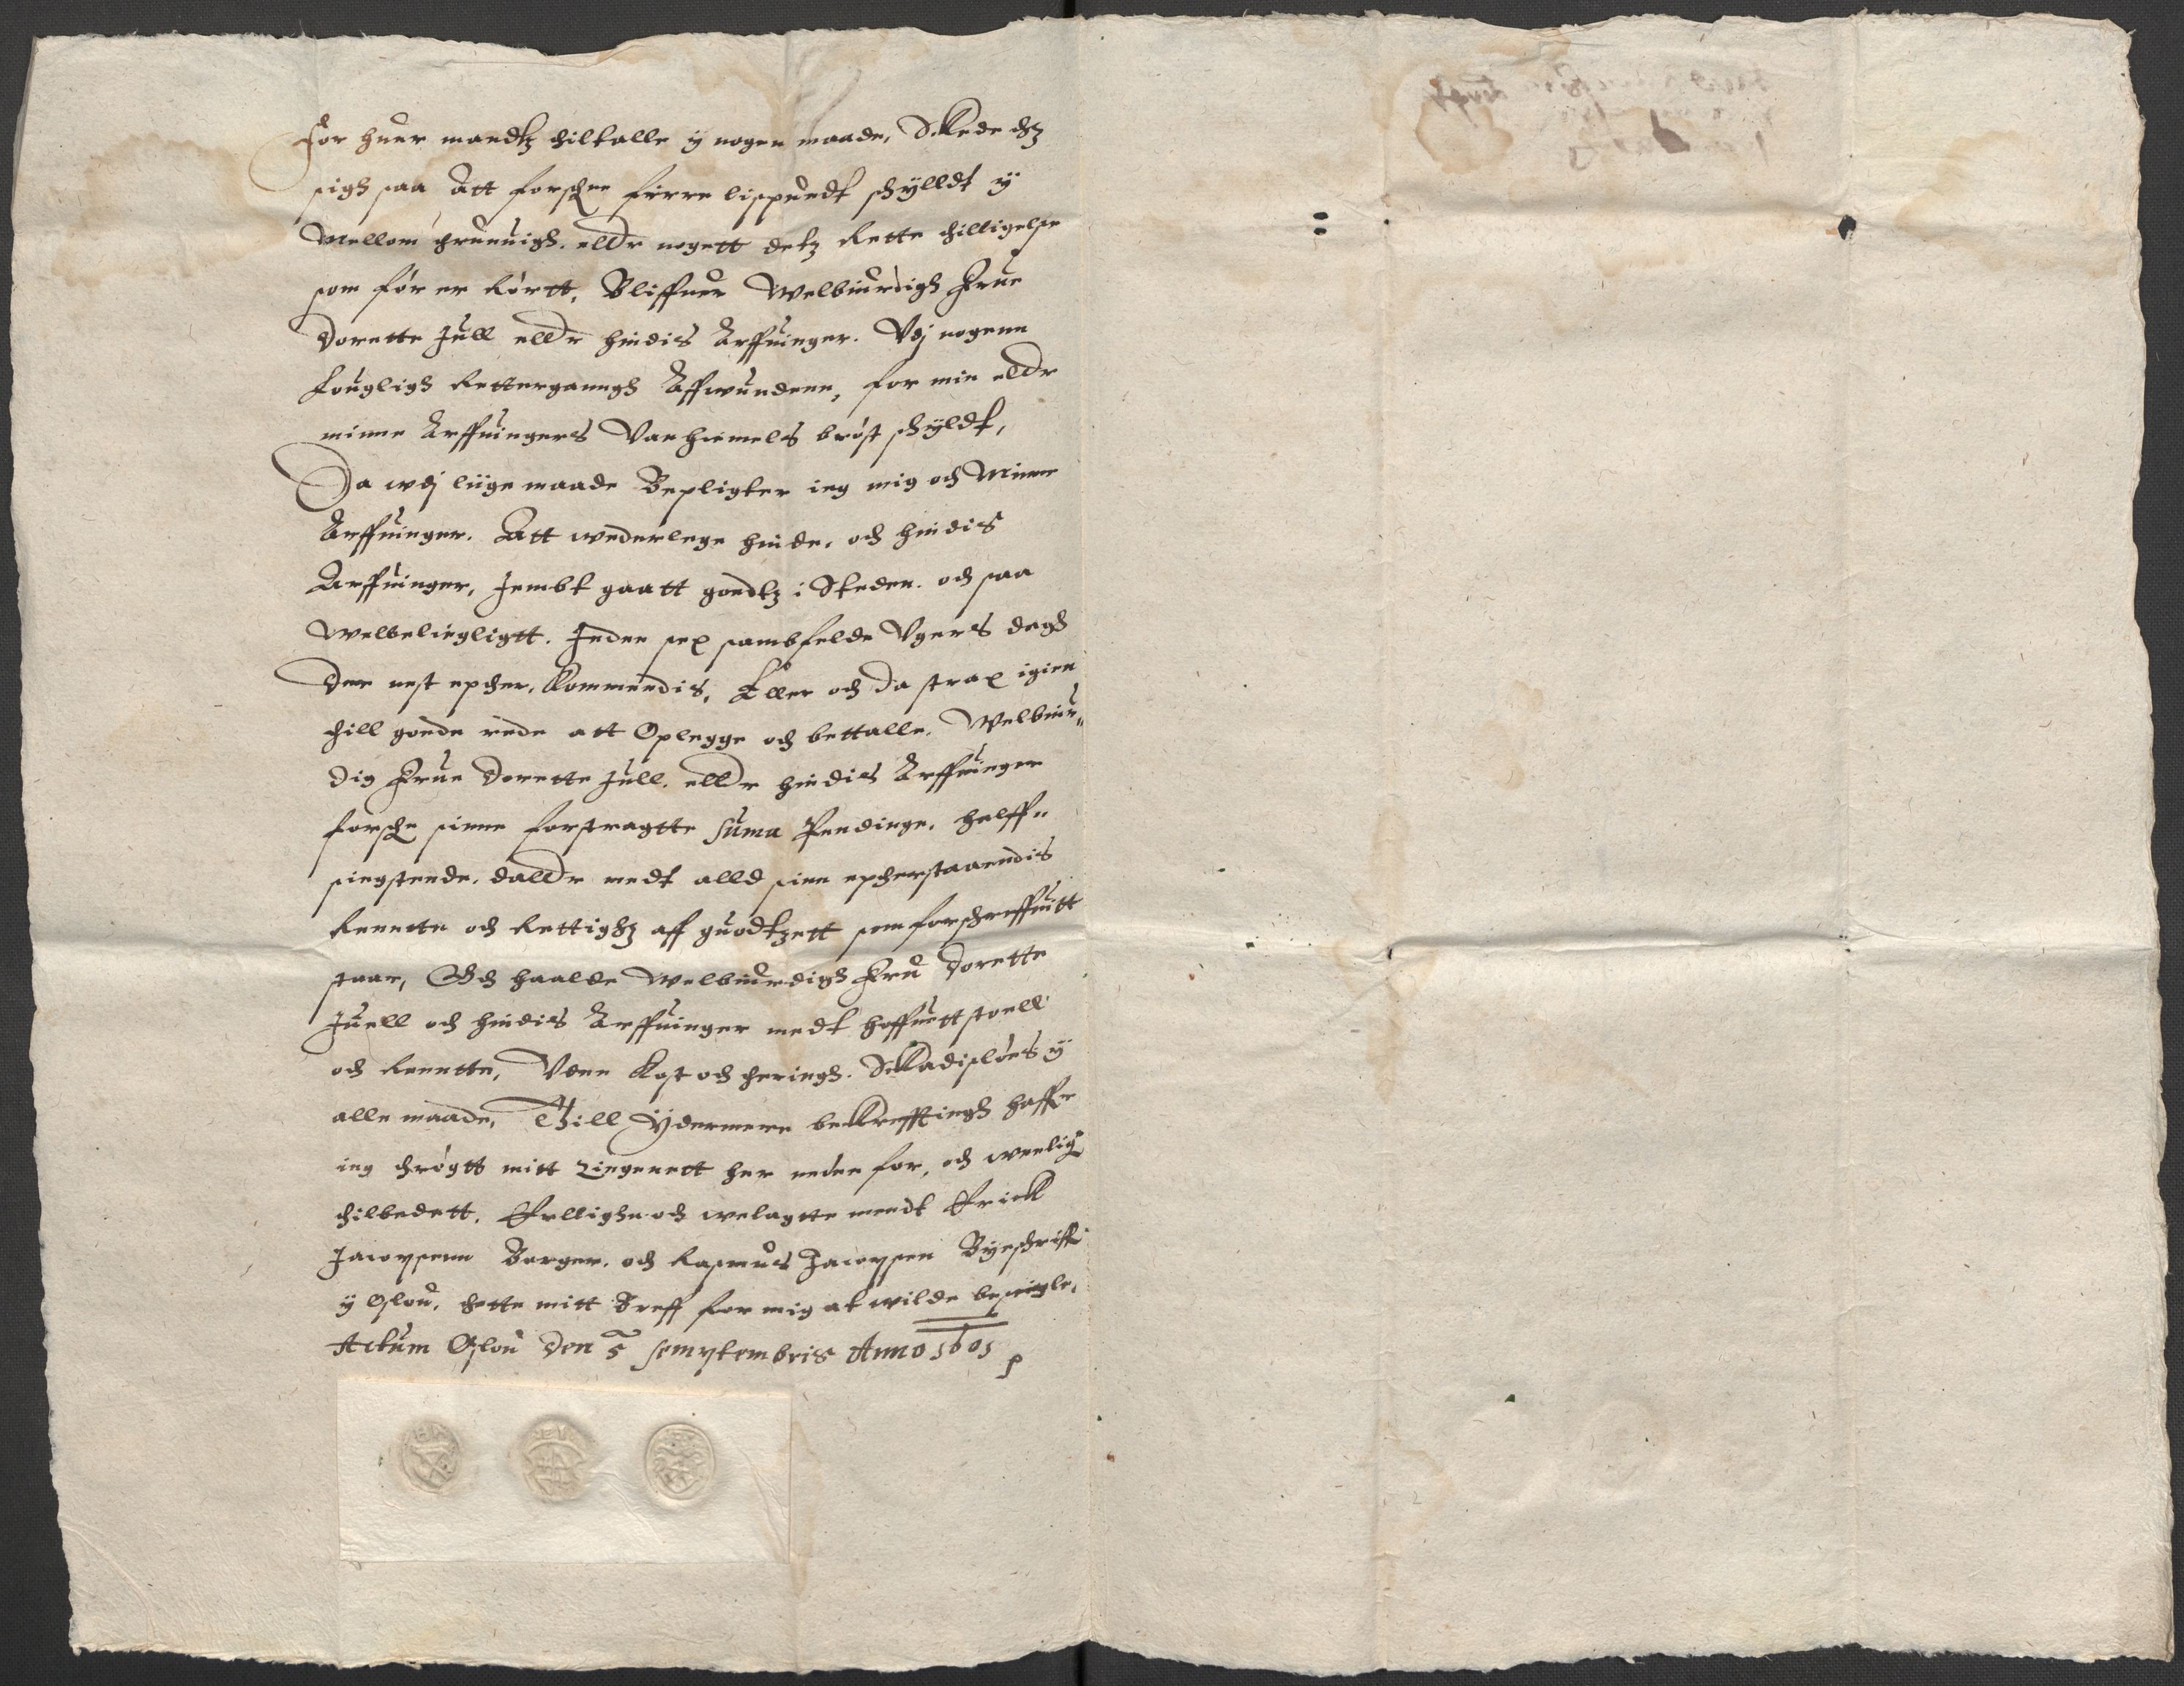 for huer mandtz thiltalle ÿ nogen maade, Skede thz
sigh saa Att forsche̅ firre lispundt schÿlldt ÿ
Mellom Gruuigh. elldr nogett detz Rette thilligelse
som för er Rörtt, Bliffuer Welbiurdigh Frue
Dorette Jull elldr hindis Arffuinger. Vdj nogenn
Lougligh Rettergaanngh Affwundenn, for min elldr
minne Arffuingers Vanhiemels bröst schÿldt,
Da wdj liigemaade Bepligter ieg mig och Minne
Arffuinger. Att wederlege hinde, och hindis
Arffuinger, Jembt gaatt goedtz i Steden. och saa
Welbeliegligtt. Inden sex sambfelde Vgers dagh
Der nest epther, Kommendis, Eller och da strax igien
thill goede rede att Oplegge och bettalle, Welbiur„
dig Frue Dorette Jull. elldr hindis Arffuinger
forsche sinne forstragtte Suma Pendinge, halff„
siegstende, dalldr medt alld sin eptherstaaendis
Rennte och Rettighz aff guodtzett som forschreffuitt
staar, Och haalde Welbiurdigh Fru Dorette
Juell och hindis Arffuinger medt hoffuettstoell
och Rennte, Vden Kost och theringh. Skadislöes ÿ
alle maade, Thill Ÿdermere bekrefftingh haffr
ieg thrögtt mitt Ziegenett her neden for, och wenlig
thilbedett. Erlighe och welagtte mendt Erick
Jacopsenn Borger. och Rasmus Jacopsen Bÿeschriffr
ÿ Oslou. thette mitt Breff for mig at wilde besiegle,
Actum Oslou den 5 Semptembris Anno 1601